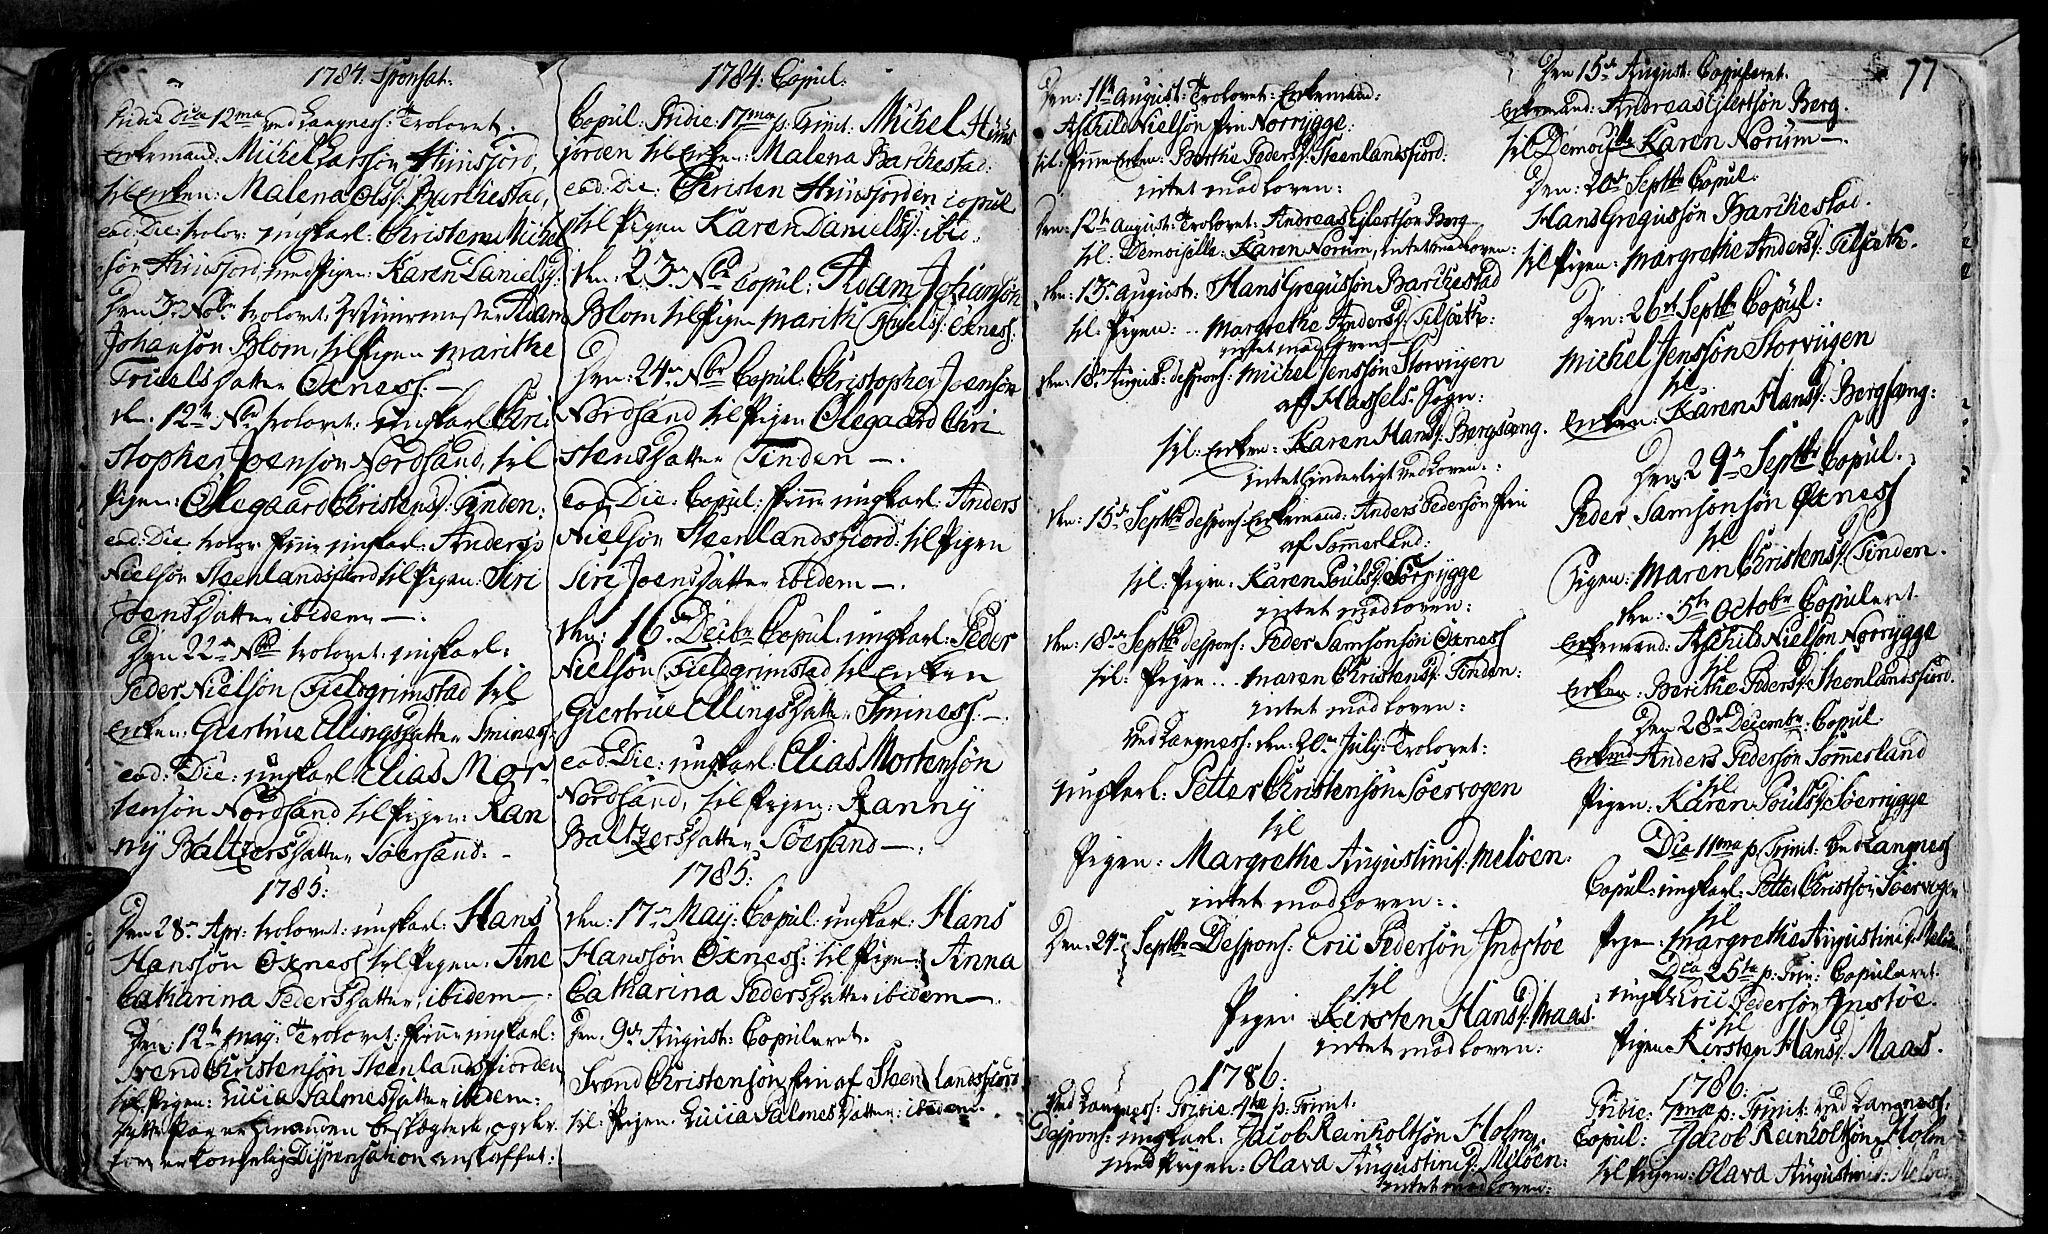 1784. Sponsat.
Pridie Dica 12ma ved Langness: Trolovet.
Enkemand: Michel Larssön Hüüsfjord,
til Enken: Malena Olsd: Barchestad,
ead: Die: trolov: ungkarl: Christen Michel
sön Hüüsfjord, med Pigen: Karen Danielsd:
Den 3. Nobr trolovet: Adam
Johansön Blom, til Pigen Marithe
Truels datter Öxness. —
den 12te Nbr trolovet: ungkarl Chri
stopher Joensön Nordsand, til
Pigen: Olegaard Christensd: Tinden:
ead: Die trolov: ungkarl: Anders
Nielsön Steenlandsfiord til Pigen: Siri
Joensdatter ibidem —.
Den 22de Nbr trolovet: ungkarl:
Peder Nielsön Fieldgrimstad til
Enken: Giertrue Ellingsdatter Sminess:
ead: Die: ungkarl Elias Mor-
tensön Nordsand til Pigen: Ran
ny Baltzersdatter Söersand: -
1785:
Den 28de Apr: trolovet: ungkarl: Hans
Hanssön Öxness til Pigen: Ane
Catharina Pedersdatter, ibidem —.
Den: 12te May: Trolovet: ungkarl:
Svend Christensön Steenlandsfiorden
til Pigen: Lucia Palmesdatter ibidem:
dette Par er hinanden beslægtede, og der-
for er kongelig Dispensation anskaffet:
1784: Copul:
Copul: Pridie: 17ma p: Trinit: Michel Hüüs
fjorden til Enken: Malena Barchestad:
ead: Die: Christen Hüüsfjorden copul
til Pigen Karen Danielsd: ibid:
den: 23de Nbr Copul: Adam Johansön
Blom til Pigen Marith Truelsd: Öxness:
Den: 24de Nbr Copul: Christopher Joensön
Nordsand til Pigen Olegaard Chri
stensdatter Tinden —.
ead: Die: Copul: ungkarl: Anders
Nielsön Steenlandsfiord: til Pigen
Siri Joensdatter ibidem —.
den: 16. Decibr Copul: ungkarl: Peder
Nielsön Fieldgrimstad til Enken
Giertrue Ellingsdatter Sminess: —
ead: Die: ungkarl: Elias Mortensön
Nordsand, til Pigen: Ranny
Baltzersdatter Söersand —.
1785:
den: 17de May: Copul: ungkarl: Hans
Hanssön Öxness: til Pigen: Anna
Catharina Pedersdatter ibidem —.
Den 9de August: Copuleret.
Svend Christensön, fin af Steenlandsfiord
til: Pigen: Lucia Palmesdatter: ibidem.
Den: 11te August: Trolovet: Enkemand:
Aschild Nielsön fin Norrygge:
til: finne Enken: Berthe Pedersd: Steenlandsfiord:
intet mod loven:
Den: 12te August: Trolovet: Andreas Eilertsön Berg
til: Demoiselle: Karen Norum, intet mod loven:
den: 13de August: Hans Gregussön Barchestad
til: Pigen: .. Margrethe Andersd: Tilseth:
intet mod loven —
den: 18de August: desponst: Michel Jenssön Storviigen
af Hassels Sogn:
til: Enken: Karen Hansd: Bergsæng.
intet hinderligt ved loven:
den: 15de Septbr desponst: Enkemand: Anders Pedersön fin
af Sommerland:
til: Pigen: Karen Poulsd: Sörrygge
intet mod loven:
den: 18de Septbr desponst: Peder Samsonsön Öxness
til: Pigen .. Maren Christensd: Tinden:
intet mod loven:
ved Langness: den: 20de July: Trolovet:
ungkarl: Petter Christensön Söervogen
til
Pigen: Margrethe Augustinid: Melöen:
intet mod loven:
Den: 24de Septbr Despons: Eric Pedersön Indstöe
til
Pigen Kirsten Hansd: Maas:
intet mod loven:
1786:
Ved Langness: Pridie 4te p: Trinit:
Despons: ungkarl: Jacob Reinholtsön Holm,
med Pigen: Olava Augustinid: Melöen:
intet mod loven:
77
Den 15de August: Copuleret.
Enkemand: Andreas Eilertsön Berg.
til Demoislle Karen Norum —.
Den: 20de Septbr Copul:
Hans Gregussön Barchestad.
til Pigen: Margrethe Andersd: Tilseth.
Den: 26de Septbr Copul:
Michel Jenssön Storviigen
til
Enken: Karen Hansd: Bergsæng:
Den: 29de Septbr Copul.
Peder Samsonsön Öxness
til
Pigen: Maren Christensd: Tinden.
den: 5te Octobr Copuleret
Enkemand: Aschild Nielsön Norrygge
til
Enken: Berithe Pedersd: Steenlandsfiord.
Den 28de Decembr: Copul:
Enkemd Anders Pedersön Sommerland
til
Pigen: Karen Poulsd: Söerrygge
Dca 11ma p: Trinit: ved Langness
Copul: ungkarl: Petter Christsön Söervogen
til
Pigen: Margrethe Augustinid: Melöen
Dca 25ta p: Trin: Copuleret.
ungk: Eric Pedersön Instöe.
til
Pigen Kirsten Hansd: Maas.
1786:
Pridie: 7mae p: Trinit: ved Langness:
Copul: Jacob Reinholtsön Holm
til Pigen: Olava Augustinid: Melöen